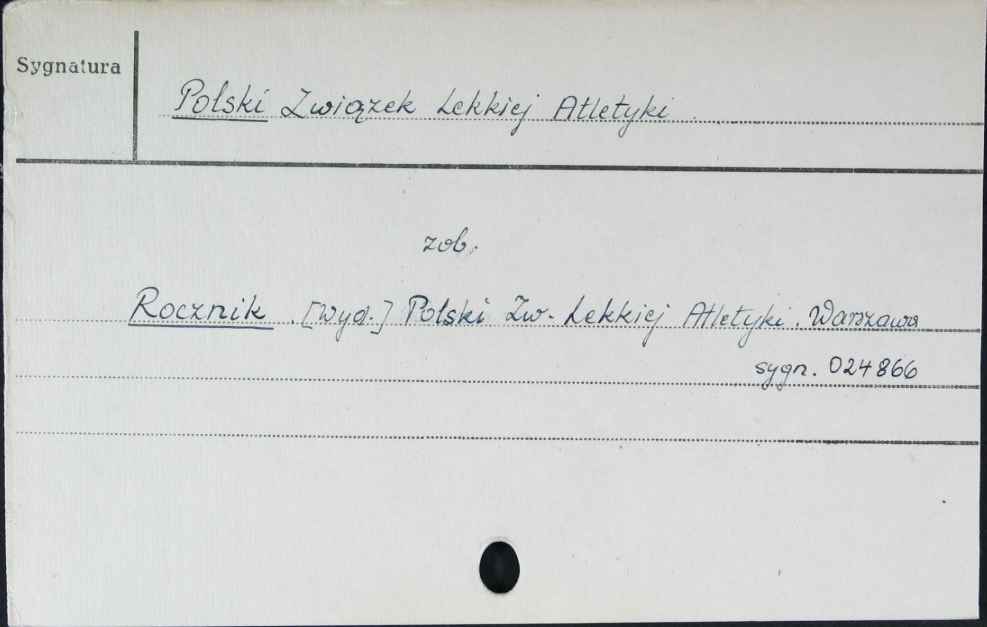 Sygnatura
Polski Związek Lekkiej Atletyki
zob.
Rocznik. [Wyd.] Polski Zw. Lekkiej Atletyki. Warszawa
sygn. 024866